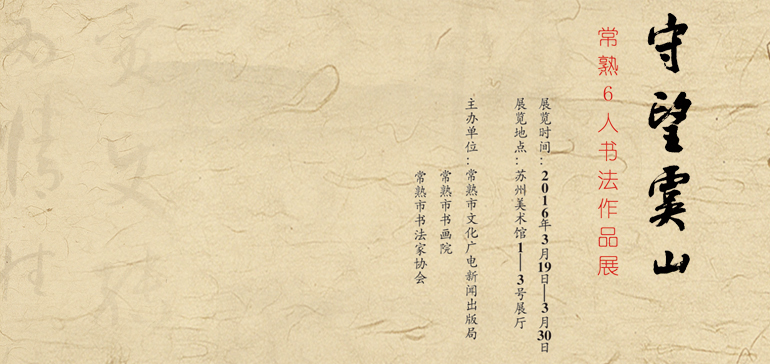 守望虞山
常熟6人书法作品展
展览时间:2016年3月19日—3月30日
展览地点:苏州美术馆1—3号展厅
主办单位:常熟市文化广电新闻出版局
常熟市书画院
常熟市书法家协会